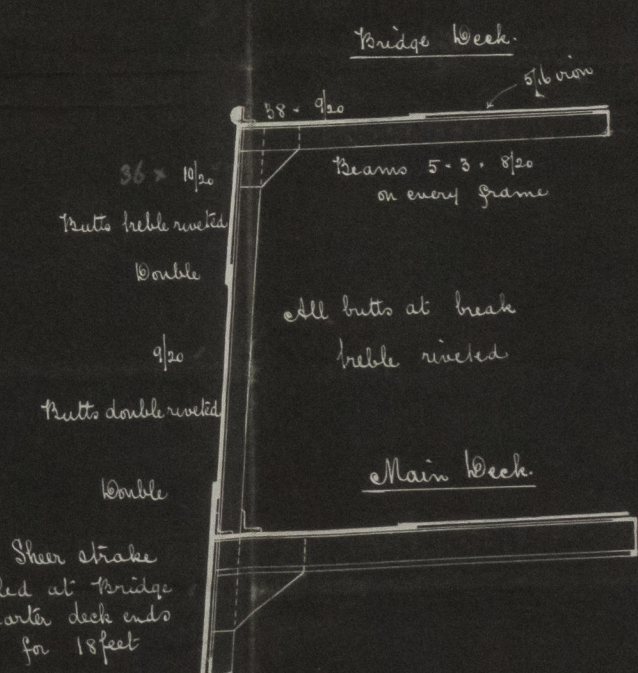 Bridge Deck.
5/16 iron
38 × 9/20
36 × 10/20
Beams 5 × 3 × 8/20
on every frame
Butts treble riveted
Double
All butts at break
treble riveted
9/20
Butts double riveted
Main Deck.
Double
Sheer strake
led at Bridge
arter deck ends
for 18 feet